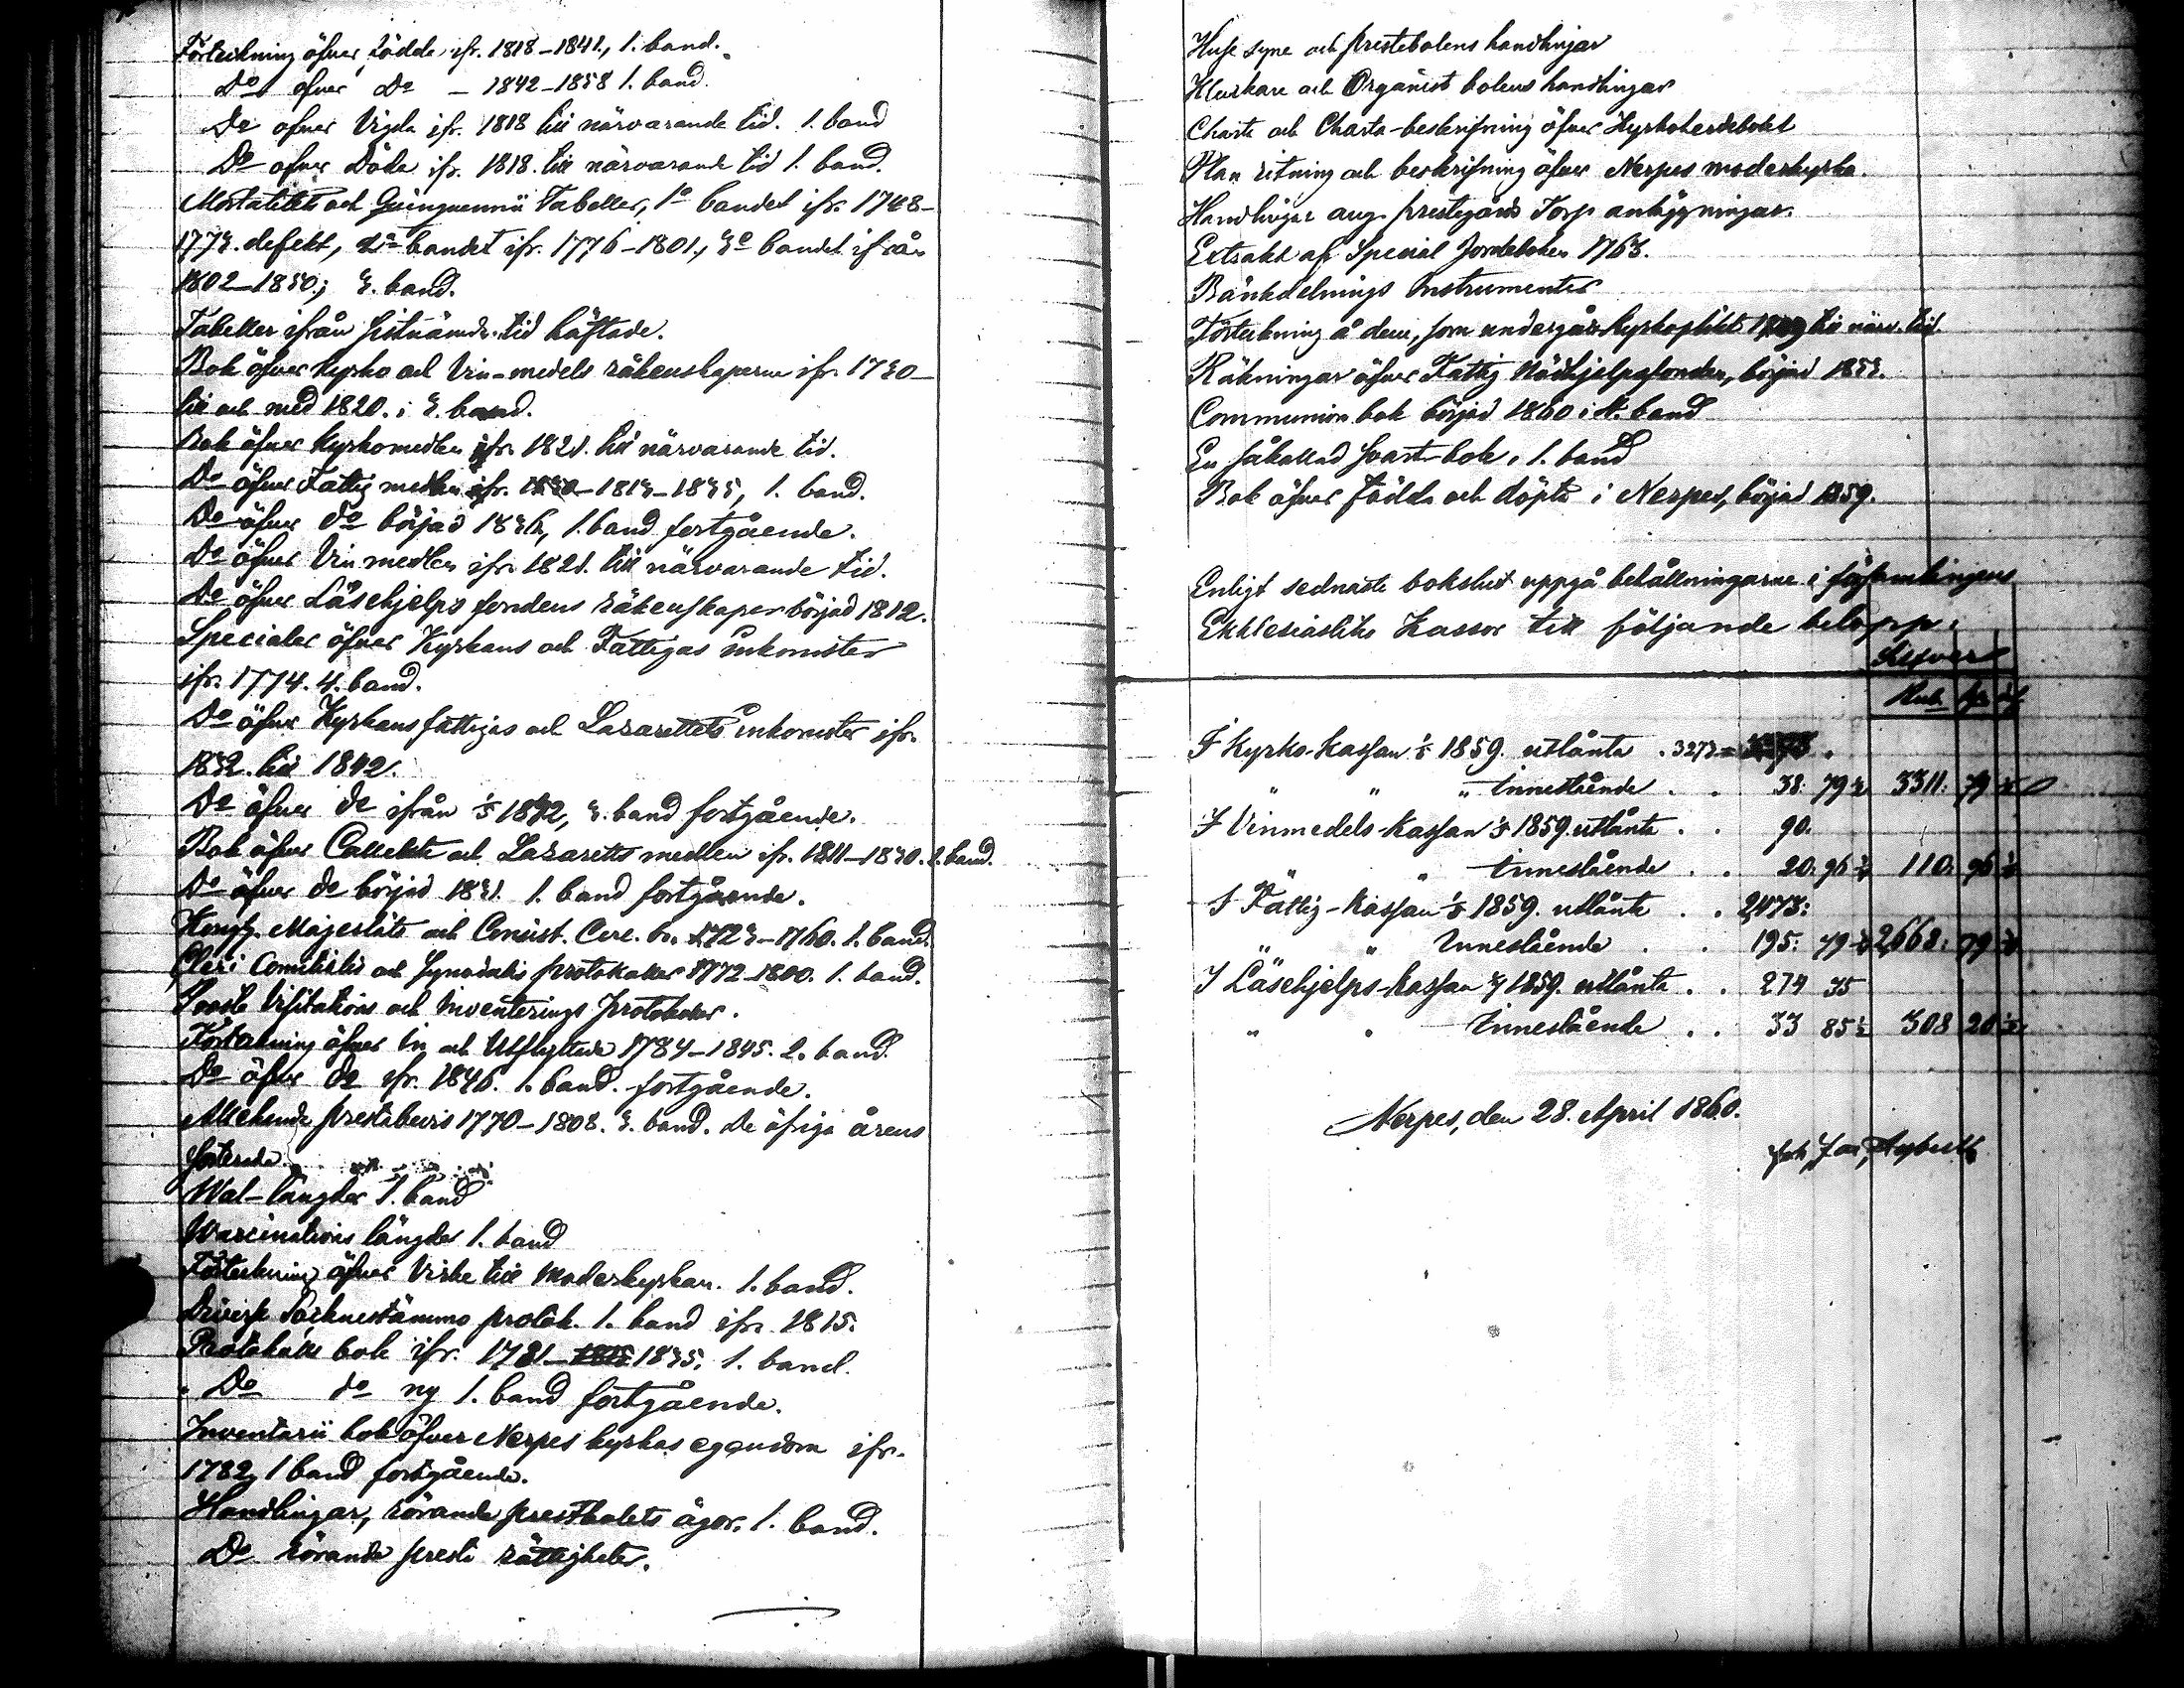 Förteckning öfver födde ifr. 1818-1841, 1. band.
Do öfver do - 1842-1858 1. band.
Do öfver Vigda ifr. 1818 till närvarande tid. 1. band
Do öfver Döda ifr. 1818. till närvarande tid 1. band.
Mortalitets och Quinquennii Tabeller, 1o bandet ifr. 1748-
1773. defekt, 2o bandet ifr. 1776-1801., 3o bandet ifrån
1802-1850; 3. band.
Tabeller ifrån sistnämde tid häftade.
Bok öfver Kyrko och Vin-medels räkenskaperne ifr. 1730-
till och med 1820. i 3. band.
Bok öfver Kyrkomedlen ifr. 1821. till närvarande tid.
Do öfver Fattig medlen ifr. 1813-1835, 1. band.
Do öfver do börjad 1836, 1. band fortgående.
Do öfver Vin medlen ifr. 1821. till närvarande tid.
Do öfver Läsehjelps fondens räkenskaper börjad 1812.
Specialer öfver Kyrkans och Fattigas inkomster
ifr. 1774. 4. band.
Do öfver Kyrkans fattigas och Lazarettets inkomster ifr.
1832. till 1842.
Do öfver do ifrån 1/5 1842, 3. band fortgående.
Bok öfver Collekt och Lazaretts medlen ifr. 1811-1830. 1. band.
Do öfver do börjad 1831. 1. band fortgående.
Kongl. Majestäts och Consist. Circ. br. 1723-1760. 1. band.
Cleri Comitialis och Synodalis protokoller 1772-1800. 1. band.
Visitations och Inventerings protokoller.
Förteckning öfver In och Utflyttade 1784-1845. 2. band.
Do öfver do ifr. 1846. 1. band. fortgående.
Attehende prestabevis 1770-1808. 3. band. De öfriga årens
Wal-längder 1. band
Waccinations längder 1. band
Förteckning öfver Virke till Moderkyrkan. 1. band.
Diverse Socknestämmo protok. 1. band ifr. 1815.
Protokolls bok ifr. 1781-1835. 1. band.
Do do ny 1. band fortgående.
Inventarii bok öfver Nerpes kyrkas egendom ifr.
1782, 1 band fortgående.
Handlingar, rörande prestbolets ägor. 1. band.
Do rörande prest rättigheter.
Huse syne och prestebolens handlingar
Kluckare och Organist bolens handlingar
Charta och Charta-beskrifning öfver Kyrkoherdebolet
Plan ritning och beskrifning öfver Nerpes moderkyrka.
Handlingar ang. prestegårds Torp anläggningar.
Extrakt af Special Jordeboken 1763.
Bänkdelnings Instrumenter
Förteckning å dem, som undergått Kyrkoplikt till närv. tid.
Räkningar öfver Fattig Nödhjelpsfonden, börjad 1833.
Communion bok börjad 1860 i 4. band
En såkallad svart-bok, 1. band
Bok öfver födda och döpta i Nerpes, börjad 1859.
Enligt sednaste bokslut uppgå behållningarne i församlingens
Ekklesiastika Kassor till följande belopp:
Silfver
Rub. kop.
I Kyrko-Kassan 1/5 1859. utlånte . 3273=
" " " Innestående . . 38: 79 1/2 3311: 79 1/2
I Vinmedels-Kassan 1/5 1859. utlånte . . 90.
" " Innestående . . 20. 96 1/2 110. 96 1/2
I Fattig-Kassan 1/5 1859. utlånte . . 2473:
" " Innestående . . 195: 79 1/2 2668: 79 1/2
I Läsehjelps-Kassan 1859. utlånte . . 274 35
" " Innestående . . 33 85 1/2 308 20 1/2
Nerpes, den 28. April 1860.